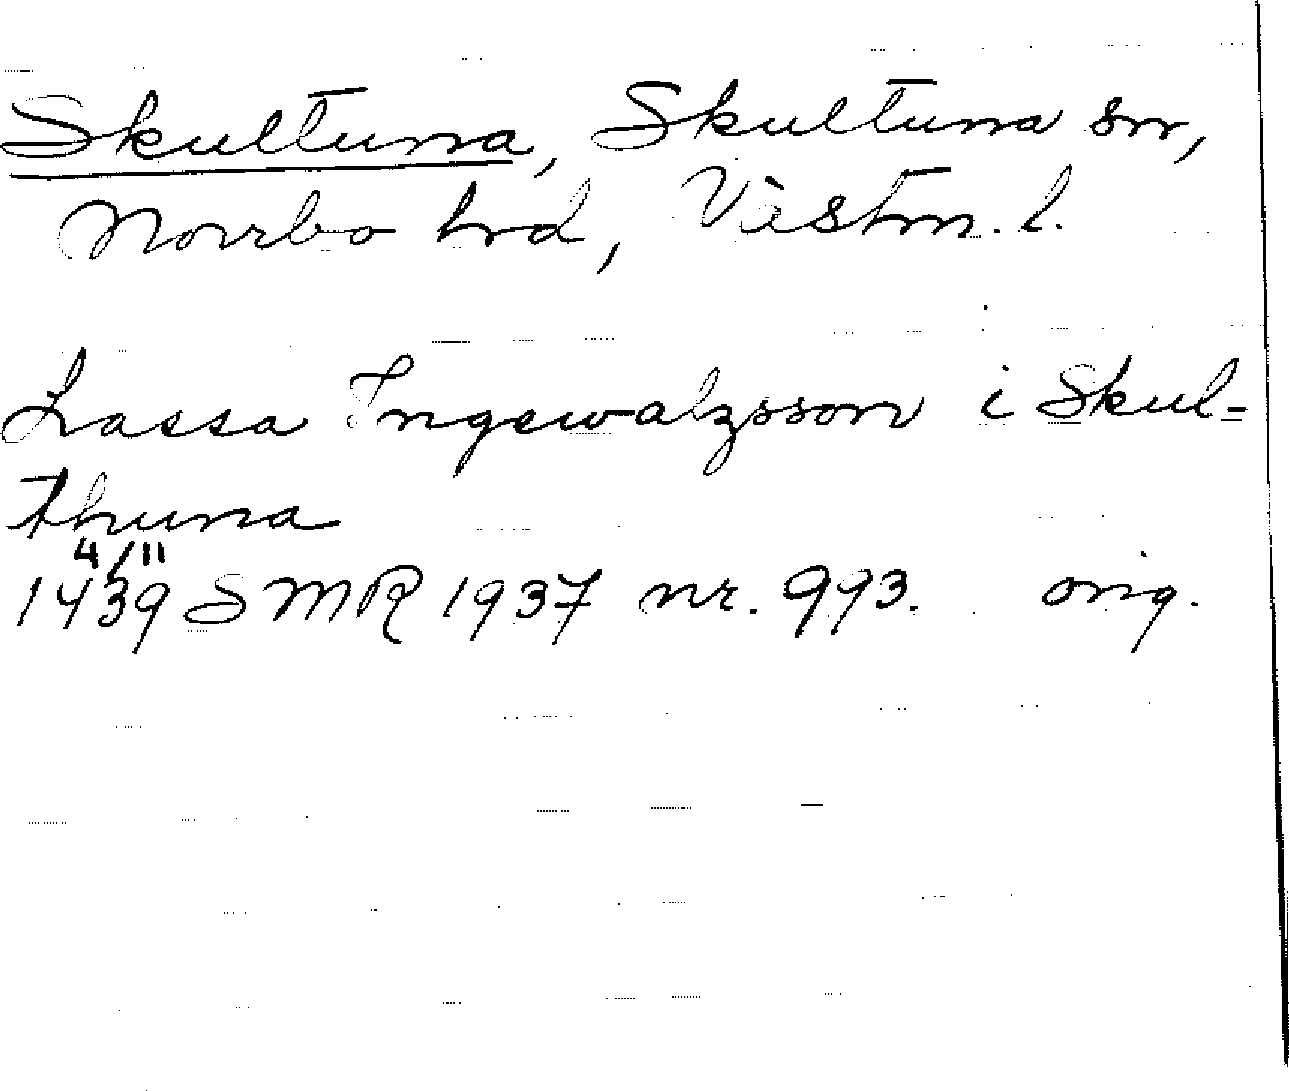 Skultuna, Skultuna sn,
Norrbo hrd, Västm. l.
Lassa Ingewalzsson i Skul-
thuna
4/11
1439 SMR 1937 nr. 993. orig.